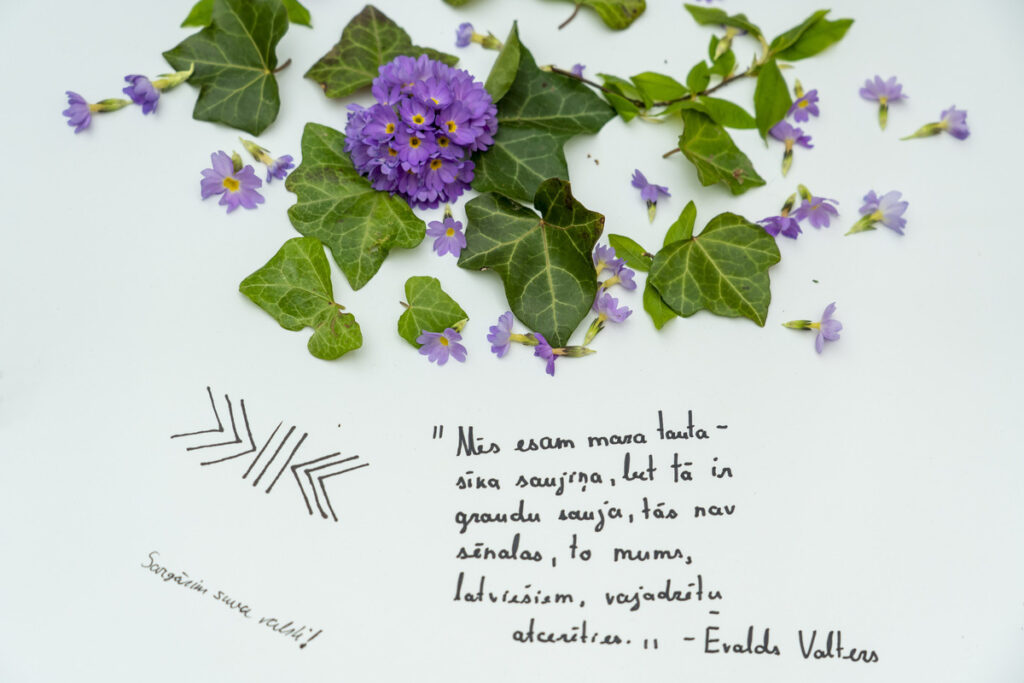 " Mēs esam maza tauta -
sīka saujiņa, bet tā ir
graudu sauja, tās nav
sēnalas, to mums,
latviešiem, vajadzētu
atcerēties. „ - Ēvalds Valters
Sargāsim savu valsti!